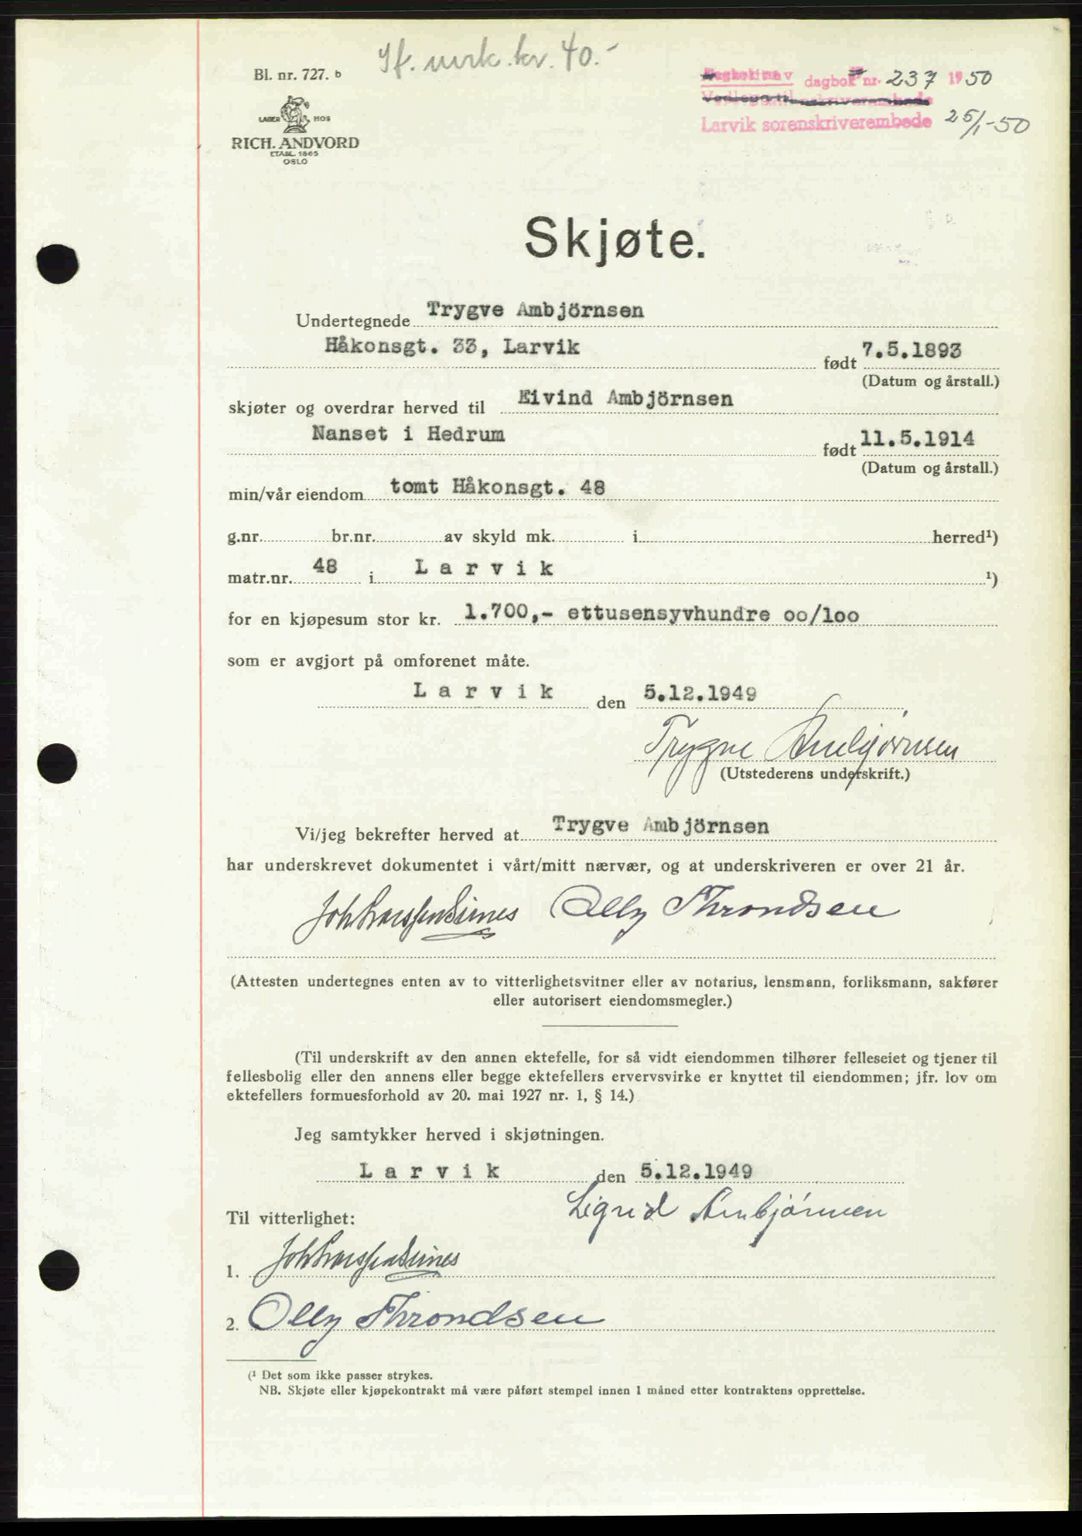 Jf. mrk. kr. 40.-
Bl. nr. 727. b
dagbok nr. 237 1950
Larvik sorenskriverembede 25/1-50
LABOR MOS
RICH. ANDVORD
ETABL. 1865
OSLO
Skjøte.
Undertegnede Trygve Ambjörnsen
Håkonsgt. 33, Larvik født 7.5.1893
(Datum og årstall.)
skjøter og overdrar herved til Eivind Ambjörnsen
Nanset i Hedrum født 11.5.1914
(Datum og årstall.)
min/vår eiendom tomt Håkonsgt. 48
g.nr. br.nr. av skyld mk. i herred¹)
matr.nr. 48 i Larvik ¹)
for en kjøpesum stor kr. 1.700,- ettusensyvhundre oo/loo
som er avgjort på omforenet måte.
Larvik den 5.12.1949
Trygve Ambjørnsen
(Utstederens underskrift.)
Vi/jeg bekrefter herved at Trygve Ambjörnsen
har underskrevet dokumentet i vårt/mitt nærvær, og at underskriveren er over 21 år.
Olly Throndsen
(Attesten undertegnes enten av to vitterlighetsvitner eller av notarius, lensmann, forliksmann, sakfører
eller autorisert eiendomsmegler.)
(Til underskrift av den annen ektefelle, for så vidt eiendommen tilhører felleseiet og tjener til
fellesbolig eller den annens eller begge ektefellers ervervsvirke er knyttet til eiendommen; jfr. lov om
ektefellers formuesforhold av 20. mai 1927 nr. 1, § 14.)
Jeg samtykker herved i skjøtningen.
Larvik den 5.12.1949
Sigrid Ambjørnsen
Til vitterlighet:
1.
2. Olly Throndsen
(¹ Det som ikke passer strykes.
NB. Skjøte eller kjøpekontrakt må være påført stempel innen 1 måned etter kontraktens opprettelse.